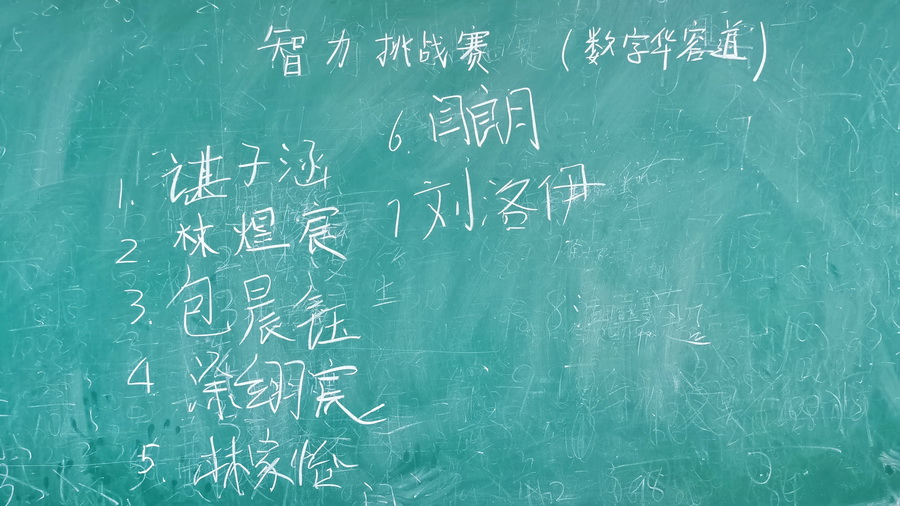 智力挑战赛 (数字华容道)
1. 谌子涵
2. 林煜宸
3. 包晨鈺
4 涂翊宸
5. 林家怡
6. 闫朗
7 刘洛伊